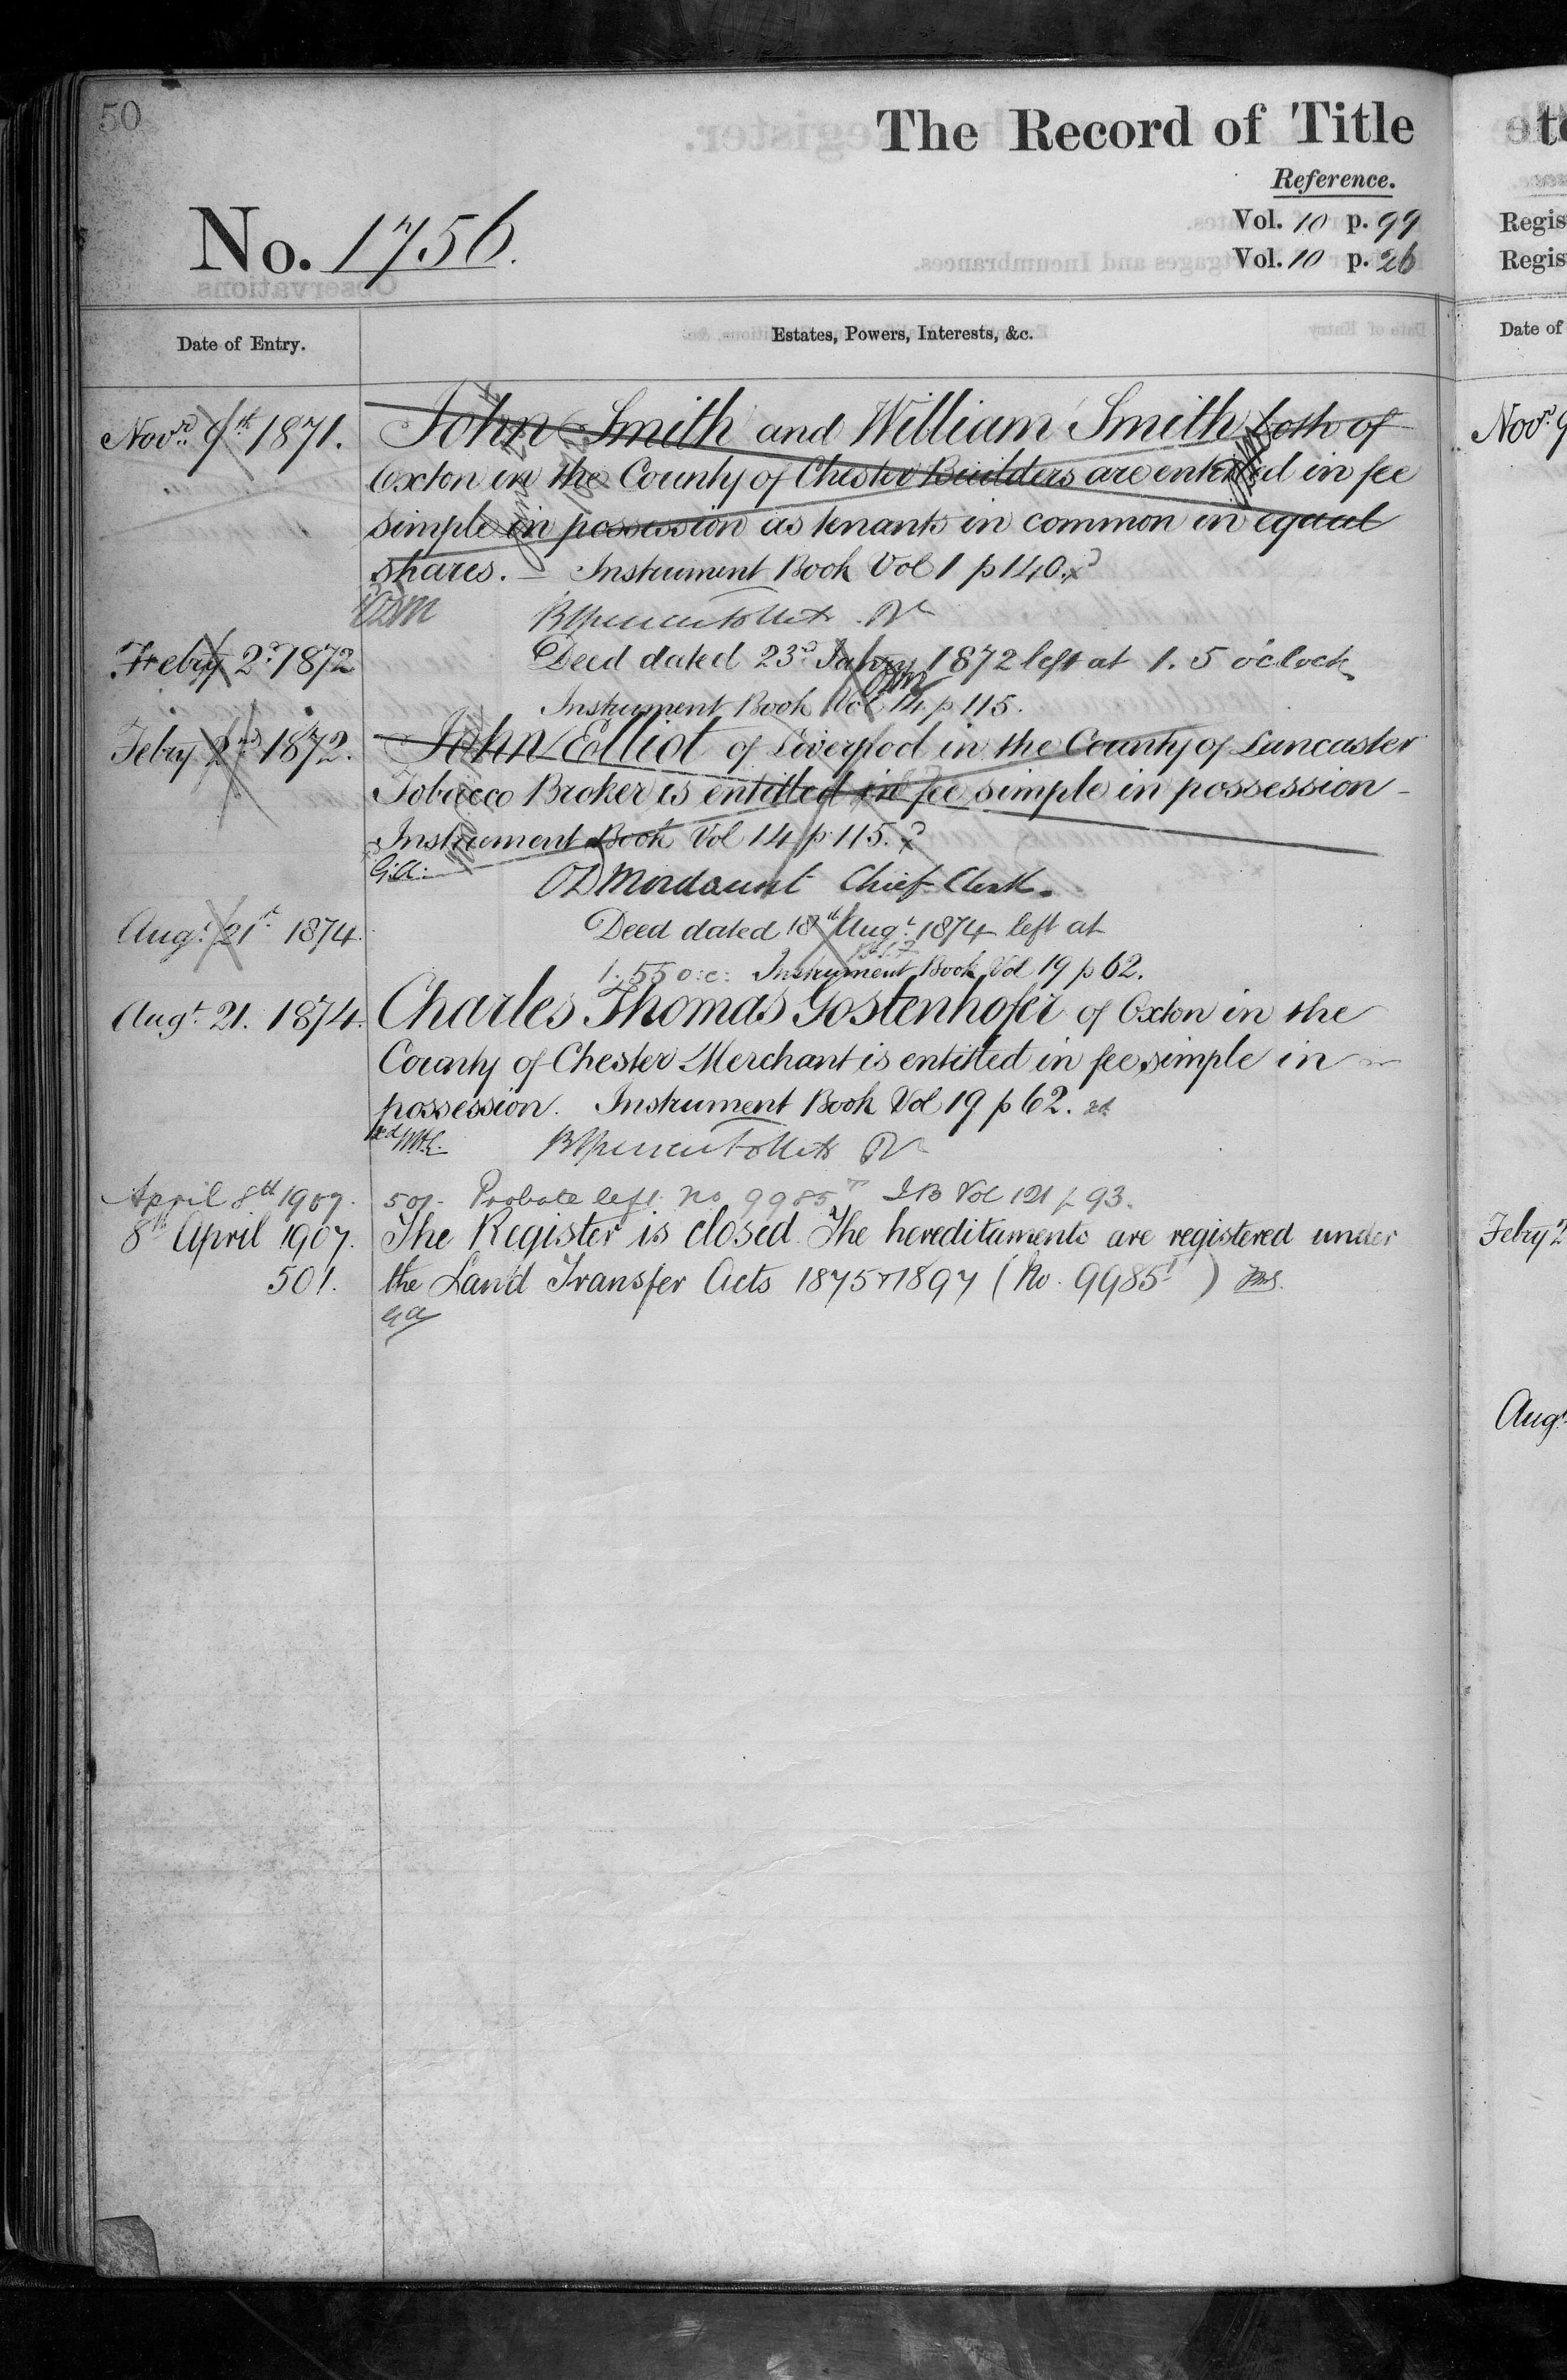 50
The Record of Title
Reference.
No. 1756.
Vol. 10 p. 99
Vol. 10 p. 26
Date of Entry.
Estates, Powers, Interests, &c.
Novr. 9th 1871.
John Smith and William Smith both of
Oxton in the County of Chester Builders are entitled in fee
simple in possession as tenants in common in equal
shares. — Instrument Book Vol 1 p 140.
Febry 2d. 1872
Deed dated 23d. Janry 1872 left at 1. 5 o'clock
Instrument Book Vol 14 p 115.
Febry 2nd 1872.
John Elliot of Liverpool in the County of Lancaster
Tobacco Broker is entitled in fee simple in possession —
Instrument Book Vol 14 p 115.
G.A.
OD Mordaunt Chief Clerk.
Augt. 21st 1874.
Deed dated 18th Augt. 1874 left at
1. 55 o:c: Instrument Book Vol 19 p 62.
Augt. 21. 1874.
Charles Thomas Gostenhofer of Oxton in the
County of Chester Merchant is entitled in fee simple in
possession. Instrument Book Vol 19 p 62.
April 8th 1907.
501. Probate left No 9985 I B Vol 121 p. 93.
8th April 1907.
The Register is closed. The hereditaments are registered under
501.
the Land Transfer Acts 1875 & 1897 (No. 9985)
Regis
Regis
Date of
Novr. 9
Febry 2
Augt.